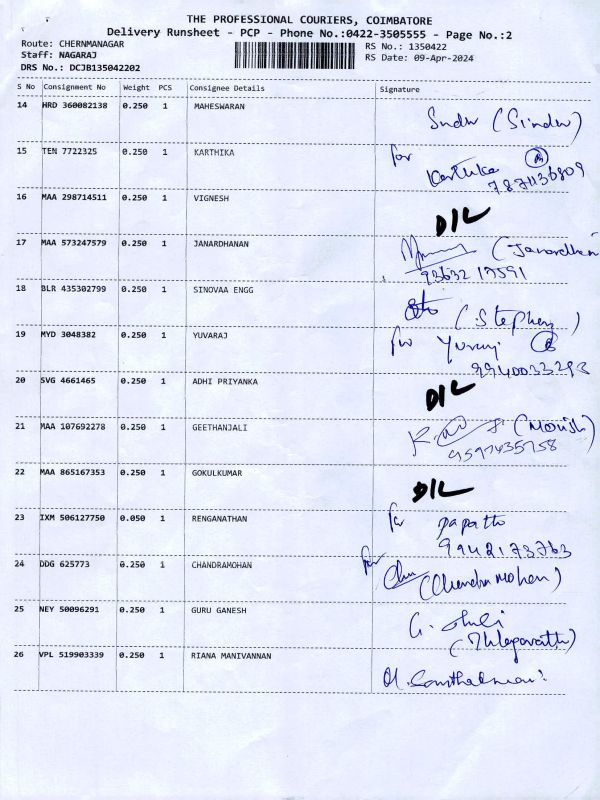 THE PROFESSIONAL COURIERS, COIMBATORE
Delivery Runsheet - PCP - Phone No.:0422-3505555 - Page No.:2
Route: CHERNMANAGAR RS No.: 1350422
Staff: NAGARAJ RS Date: 09-Apr-2024
DRS No.: DCJB135042202
S No Consignment No Weight PCS Consignee Details Signature
14 HRD 360082138 0.250 1 MAHESWARAN
(Sindu)
15 TEN 7722325 0.250 1 KARTHIKA for
Karthika
16 MAA 298714511 0.250 1 VIGNESH
D/L
17 MAA 573247579 0.250 1 JANARDHANAN
93632 17591
18 BLR 435302799 0.250 1 SINOVAA ENGG
(Stephen)
19 MYD 3048382 0.250 1 YUVARAJ for Yuvaraj
9940033293
20 SVG 4661465 0.250 1 ADHI PRIYANKA
D/L
21 MAA 107692278 0.250 1 GEETHANJALI
9597435758
22 MAA 865167353 0.250 1 GOKULKUMAR
D/L
23 IXM 506127750 0.050 1 RENGANATHAN for
9942173763
24 DDG 625773 0.250 1 CHANDRAMOHAN for
(Chandra Mohan)
25 NEY 50096291 0.250 1 GURU GANESH
26 VPL 519903339 0.250 1 RIANA MANIVANNAN